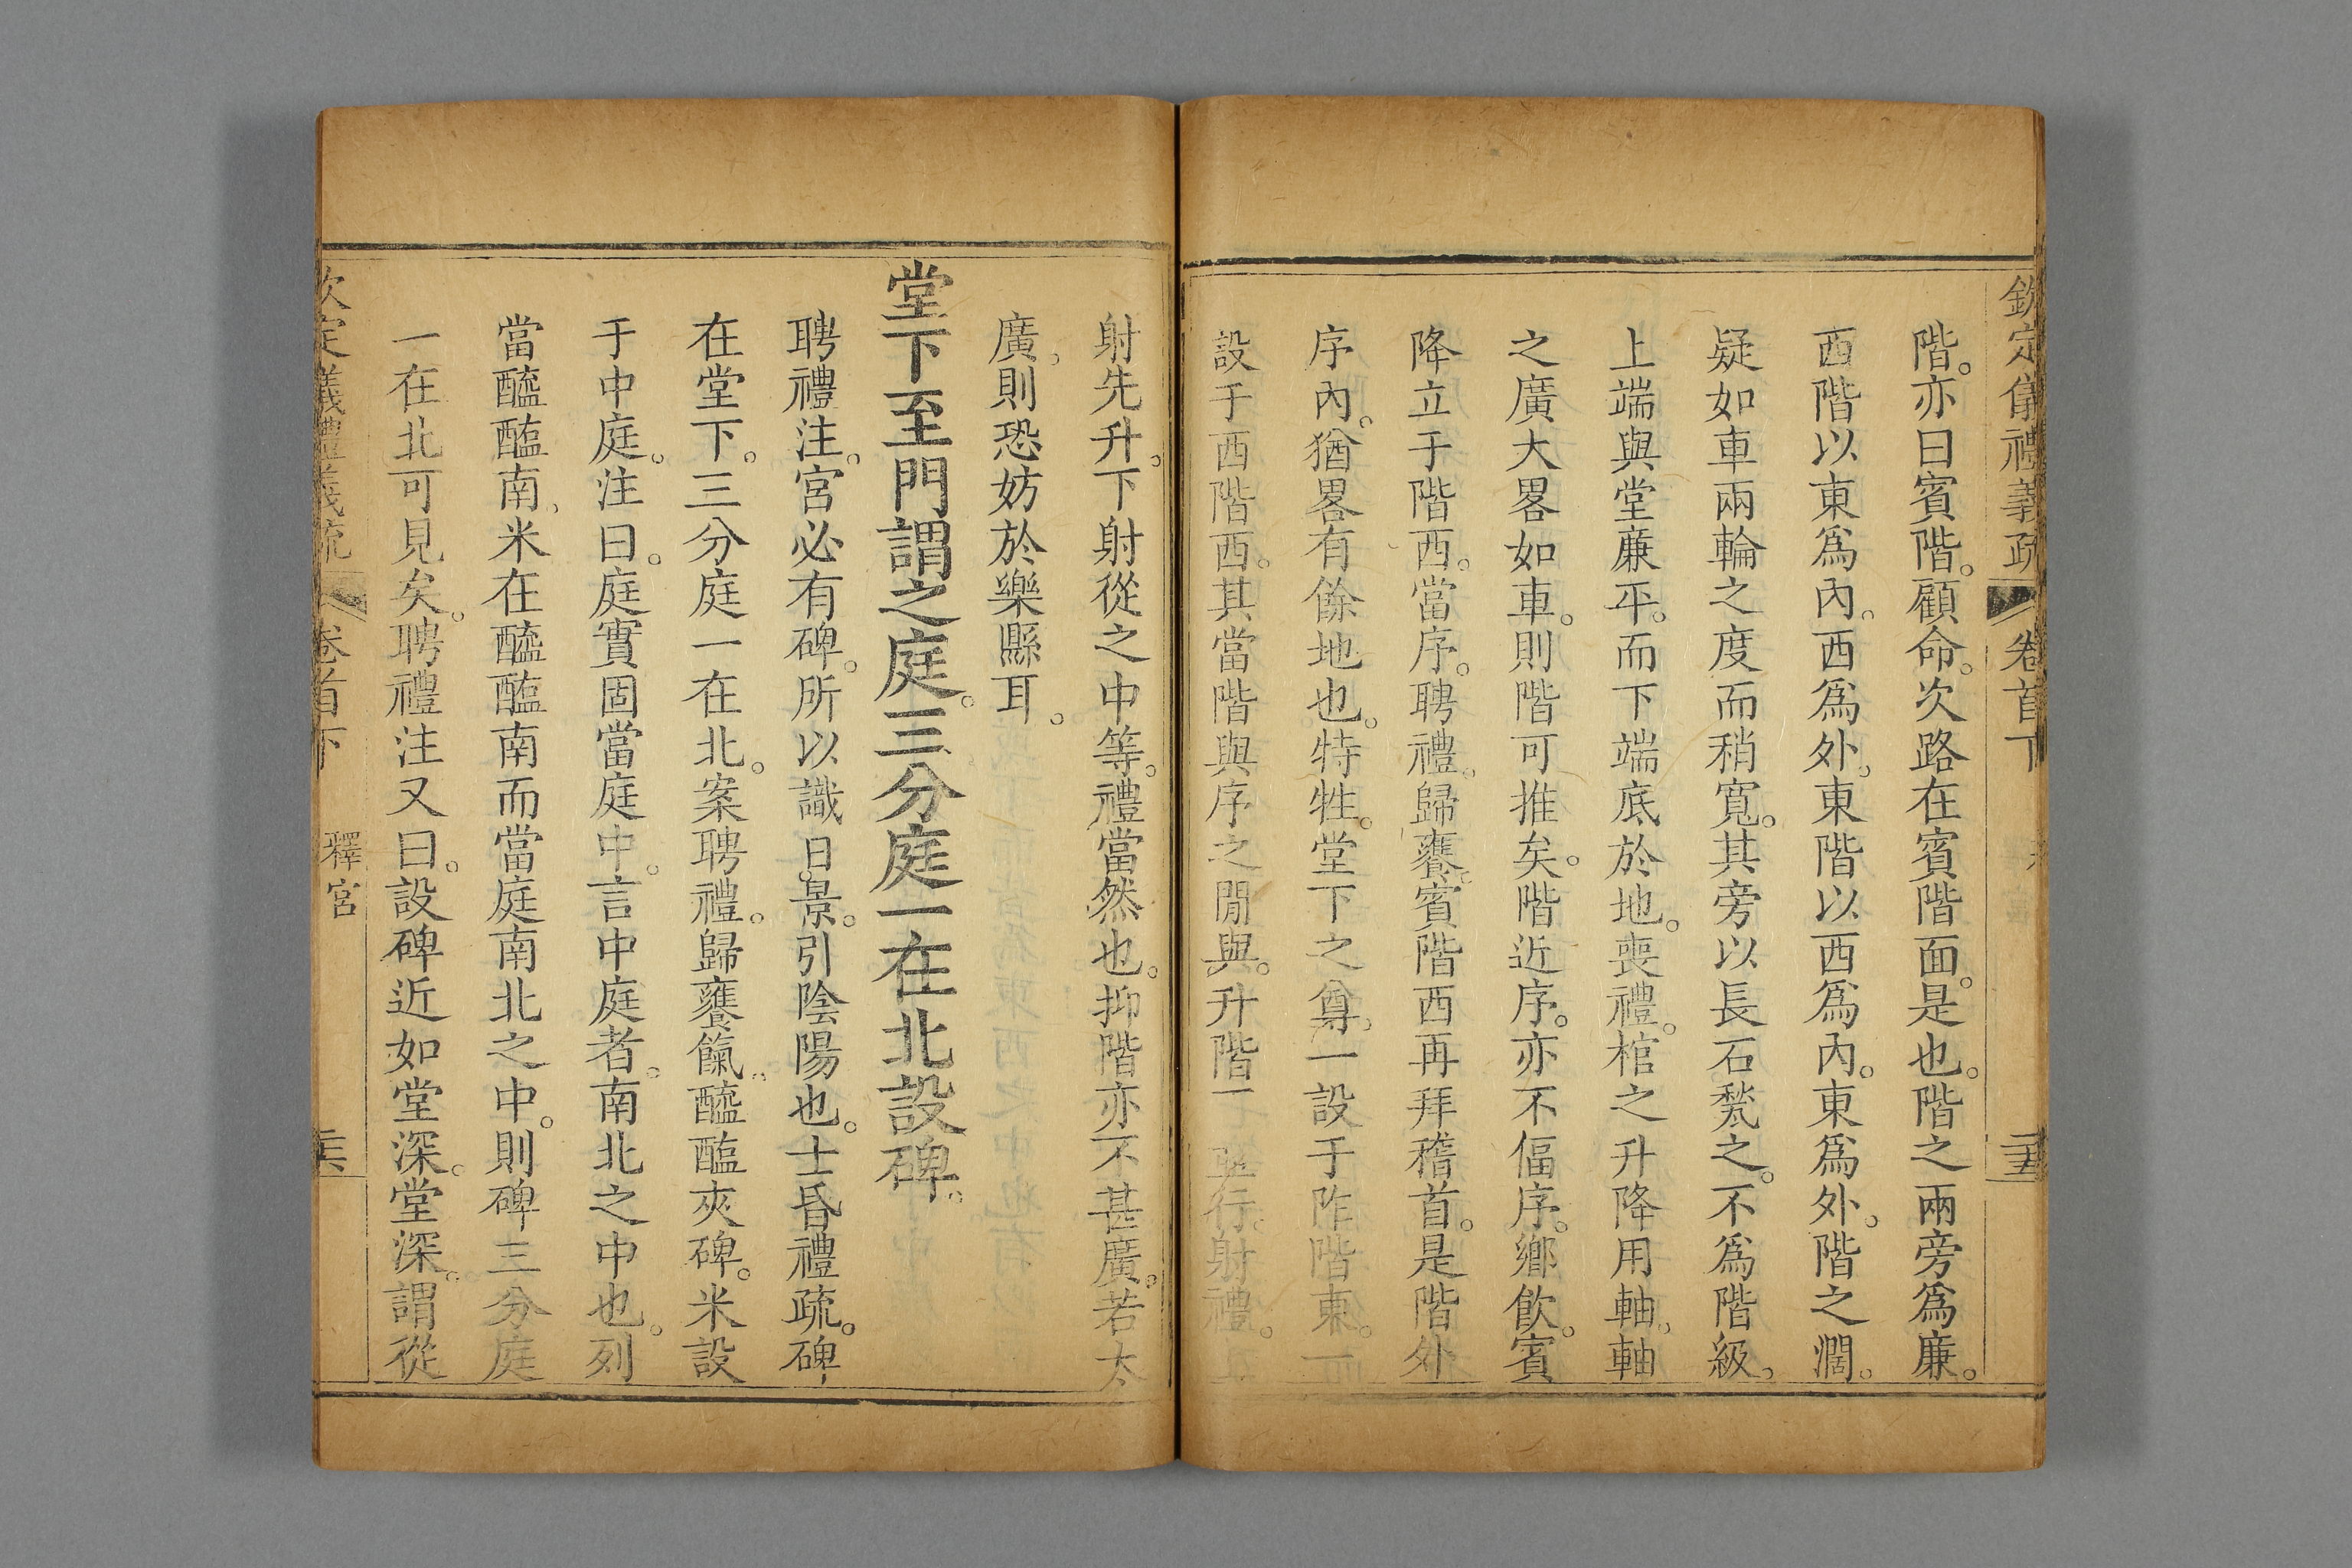 欽定儀禮義疏 卷首下
階。亦曰賓階。顧命。次路在賓階面。是也。階之兩旁爲廉。
西階以東爲內。西爲外。東階以西爲內。東爲外。階之濶。
疑如車兩輪之度而稍寬。其旁以長石甃之。不爲階級。
上端與堂廉平。而下端底於地。喪禮。棺之升降用軸。軸
之廣大畧如車。則階可推矣。階近序。亦不偪序。鄉飮。賓
降立于階西。當序。聘禮。歸饔。賓階西再拜稽首。是階外
序內。猶畧有餘地也。特牲。堂下之尊。一設于阼階東。一
設于西階西。其當階與序之閒與。升階 並行。射禮。上
射先升。下射從之中等。禮當然也。抑階亦不甚廣。若太
廣。則恐妨於樂縣耳。
堂下至門謂之庭。三分庭一在北設碑。
聘禮注。宮必有碑。所以識日景。引陰陽也。士昏禮疏。碑
在堂下。三分庭一在北。案聘禮。歸饔餼。醯醢夾碑。米設
于中庭。注曰。庭實固當庭中。言中庭者。南北之中也。列
當醯醢南。米在醯醢南而當庭南北之中。則碑三分庭
一在北可見矣。聘禮注又曰。設碑近如堂深。堂深。謂從
欽定儀禮義疏 卷首下 釋宮